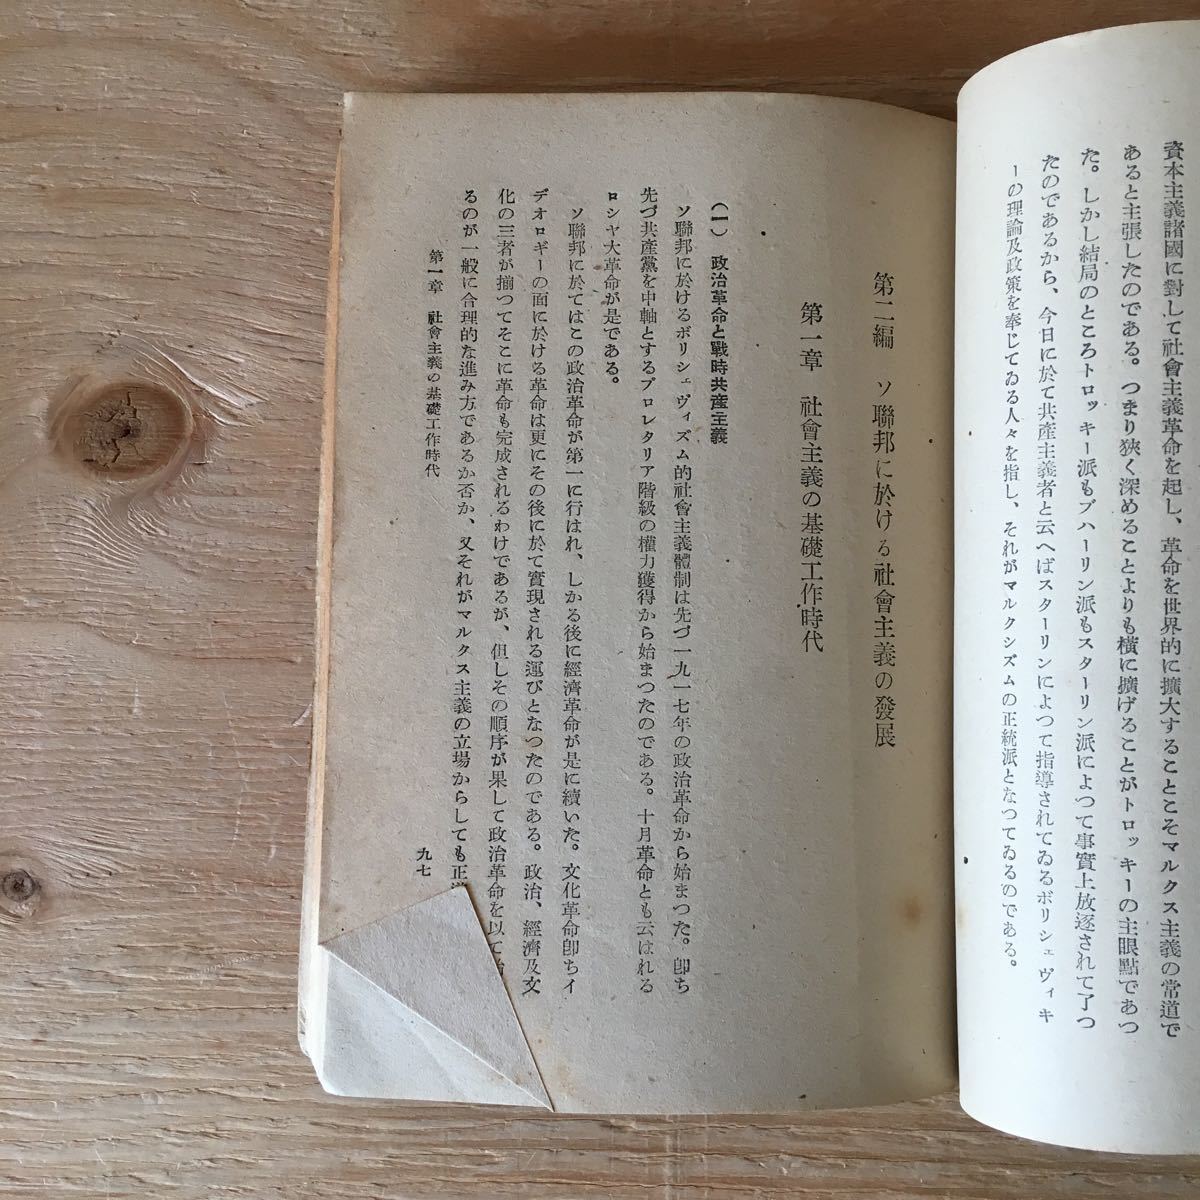 資本主義諸國に對して社會主義革命を起し、革命を世界的に擴大することこそマルクス主義の常道で
あると主張したのである。つまり狹く深めることよりも横に擴げることがトロッキーの主眼點であつ
た。しかし結局のところトロッキー派もブハーリン派もスターリン派によつて事實上放逐されて了つ
たのであるから、今日に於て共產主義者と云へばスターリンによつて指導されてゐるボリシェヴィキ
ーの理論及政策を奉じてゐる人々を指し、それがマルクシズムの正統派となつてゐるのである。
第二編　ソ聯邦に於ける社會主義の發展
第一章　社會主義の基礎工作時代
（一）　政治革命と戰時共產主義
ソ聯邦に於けるボリシェヴィズム的社會主義體制は先づ一九一七年の政治革命から始まつた。卽ち
先づ共產黨を中軸とするプロレタリア階級の權力獲得から始まつたのである。十月革命とも云はれる
ロシヤ大革命が是である。
ソ聯邦に於てはこの政治革命が第一に行はれ、しかる後に經濟革命が是に續いた。文化革命卽ちイ
デオロギーの面に於ける革命は更にその後に於て實現される運びとなつたのである。政治、經濟及文
化の三者が揃つてそこに革命も完成されるわけであるが、但しその順序が果して政治革命を以て
るのが一般に合理的な進み方であるか否か、又それがマルクス主義の立場からしても正
第一章　社會主義の基礎工作時代
九七